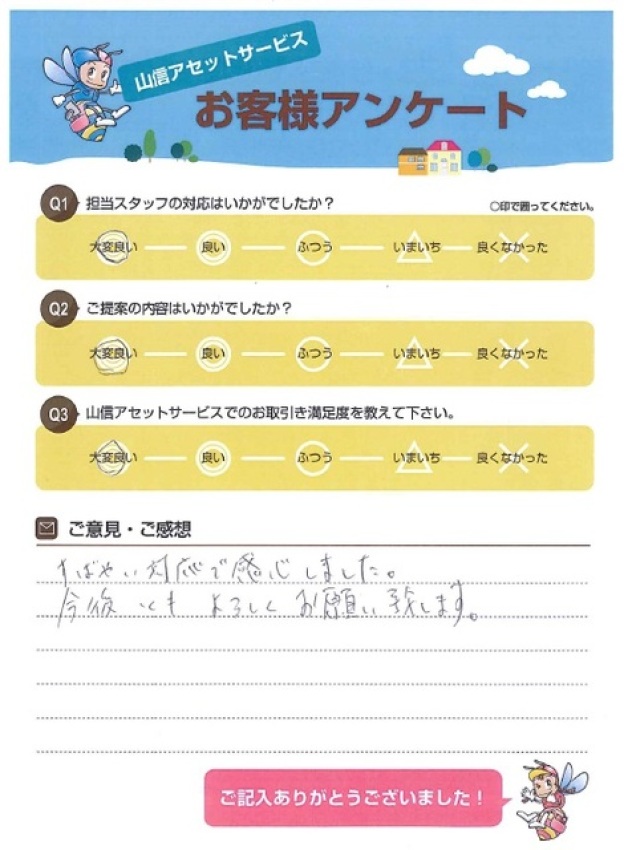 山信アセットサービス
お客様アンケート
Q1 担当スタッフの対応はいかがでしたか？ ○印で囲ってください。
大変良い 良い ふつう いまいち 良くなかった
Q2 ご提案の内容はいかがでしたか？
大変良い 良い ふつう いまいち 良くなかった
Q3 山信アセットサービスでのお取引き満足度を教えて下さい。
大変良い 良い ふつう いまいち 良くなかった
ご意見・ご感想
すばやい対応で感心しました。
今後ともよろしくお願い致します。
ご記入ありがとうございました！